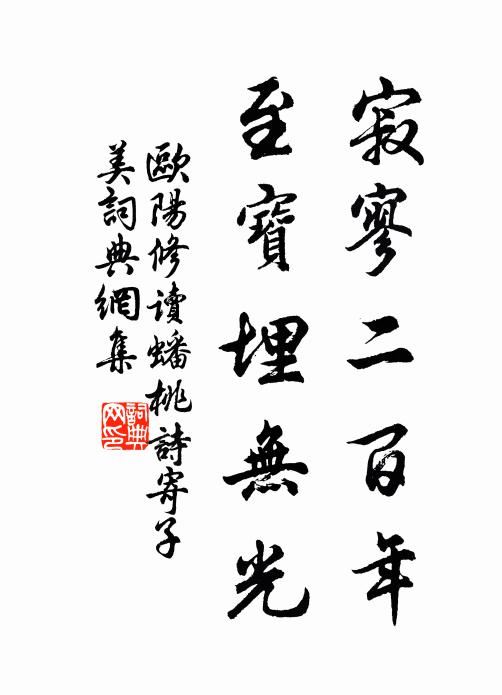 寂寥二百年
至寶埋無光
歐陽修讀蟠桃詩寄子
美詞典網集
詞典网印